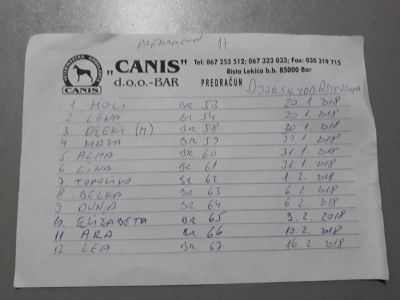 PREDRAČUN 17
„CANIS"
Tel: 067 253 512; 067 323 033; Fax: 030 319 715
Rista Lekića b.b. 85000 Bar
d.o.o.-BAR
PREDRAČUN
CANIS
1. MOLI BR 53 20.1.2018
2 LENA BR 54 20.1.2018
3. DŽEKI (M) BR 58 20.1.2018
4 MAZA BR 59
5 ALMA BR 60 31.1.2018
6 LINA BR 61 31.1.2018
7 TOPOLINO BR 62 1.2.2018
8. BELKA BR 63 6.2.2018
9 DUNJA BR 64 6.2.2018
10. ELIZABETA BR 65 9.2.2018
11 ARA BR 66 10.2.2018
12 LEA BR 67 16.2.2018